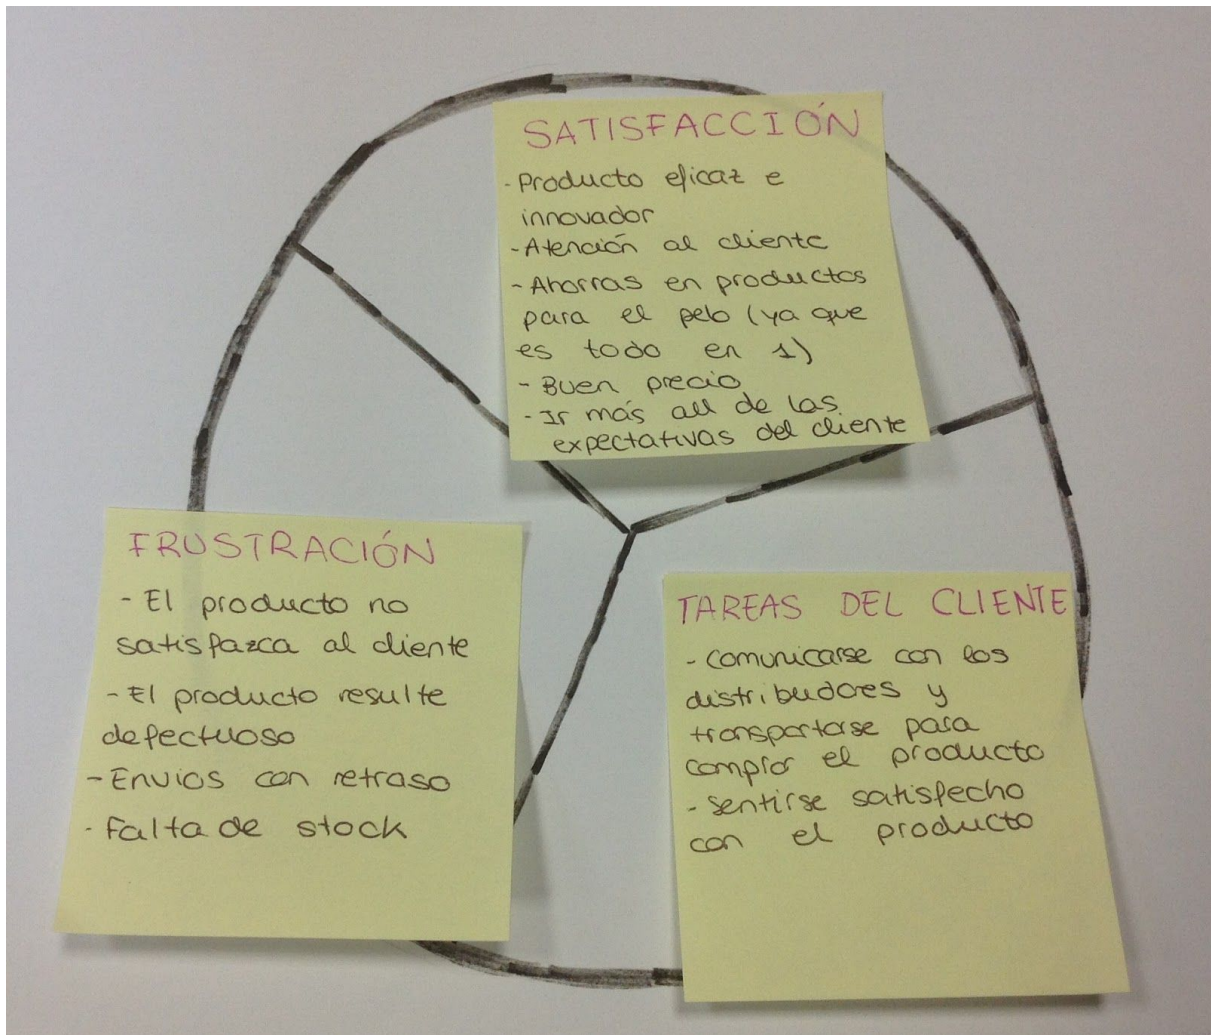 SATISFACCIÓN
- Producto eficaz e
innovador
- Atención al cliente
- Ahorras en productos
para el pelo (ya que
es todo en 1)
- Buen precio
- Ir más all de las
expectativas del cliente
FRUSTRACIÓN
- El producto no
satisfazca al cliente
- El producto resulte
defectuoso
- Envios con retraso
- Falta de stock
TAREAS DEL CLIENTE
- Comunicarse con los
distribuidores y
transportarse para
comprar el producto
- Sentirse satisfecho
con el producto